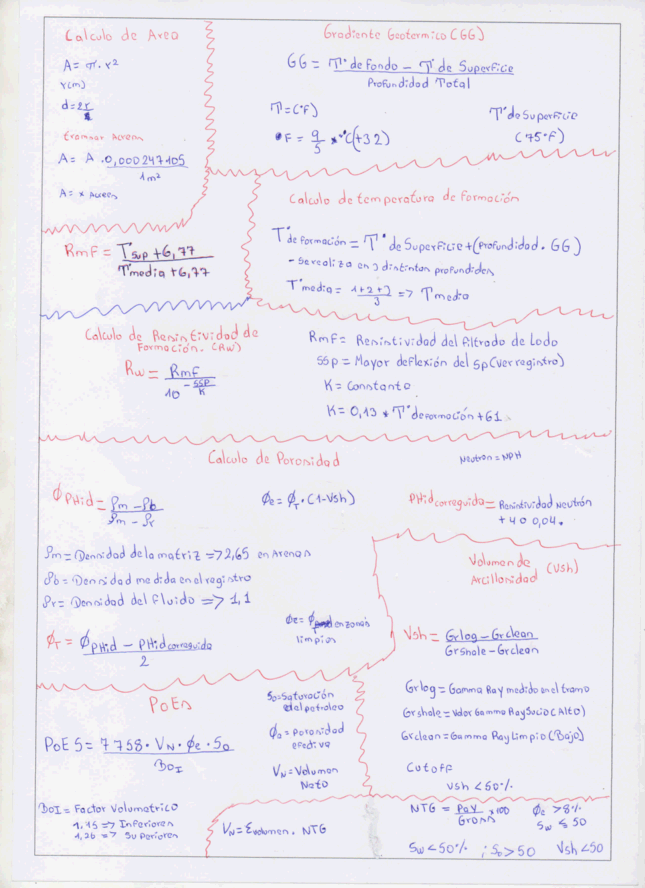 Calculo de Area
A = π . r²
r(m)
d = 2r
Examinar Acres
A = A . 0,000247105
1m²
A = x Acres
Gradiente Geotermico (GG)
GG = T° de Fondo - T° de Superficie
Profundidad Total
T = (°F)
T° de Superficie
°F = 9/5 * °C (+32)
(75°F)
Calculo de temperatura de Formación
T° de Formación = T° de Superficie + (Profundidad . GG)
- se realiza en 3 distintas profundides
T° media = 1+2+3 => T media
3
RmF = T sup + 6,77
T° media + 6,77
Calculo de Resistividad de
Formación. (RW)
Rw = RmF
10 -SSP/K
RmF = Resistividad del filtrado de Lodo
SSP = Mayor deflexión del SP (ver registro)
K = Constante
K = 0,13 * T° de formación + 61
Calculo de Porosidad
Neutron = NPH
ϕPHid = ρm - ρb
ρm - ρf
ϕe = ϕT . (1-Vsh)
PHid correguida = Resistividad Neutrón
+ 4 o 0,04.
ρm = Densidad de la matriz => 2,65 en Arenas
ρb = Densidad medida en el registro
ρf = Densidad del Fluido => 1,1
ϕT = ϕPHid - PHid correguida
2
ϕe = ϕT en zonas
limpias
Volumen de
Arcillosidad (Vsh)
Vsh = Grlog - Grclean
Grshale - Grclean
Grlog = Gamma Ray medido en el tramo
Grshale = Valor Gamma Ray Sucio (Alto)
Grclean = Gamma Ray Limpio (Bajo)
Cutoff
Vsh < 50%
POES
POES = 7758 . VN . ϕe . So
BOI
So = Saturación
del petroleo
ϕe = Porosidad
efectiva
VN = Volumen
Neto
BOI = Factor Volumetrico
1,15 => Inferiores
1,26 => Superiores
VN = Σvolumen . NTG
NTG = Pay x100
Gross
ϕe > 8%
Sw ≤ 50
Sw < 50% ; So > 50 Vsh < 50